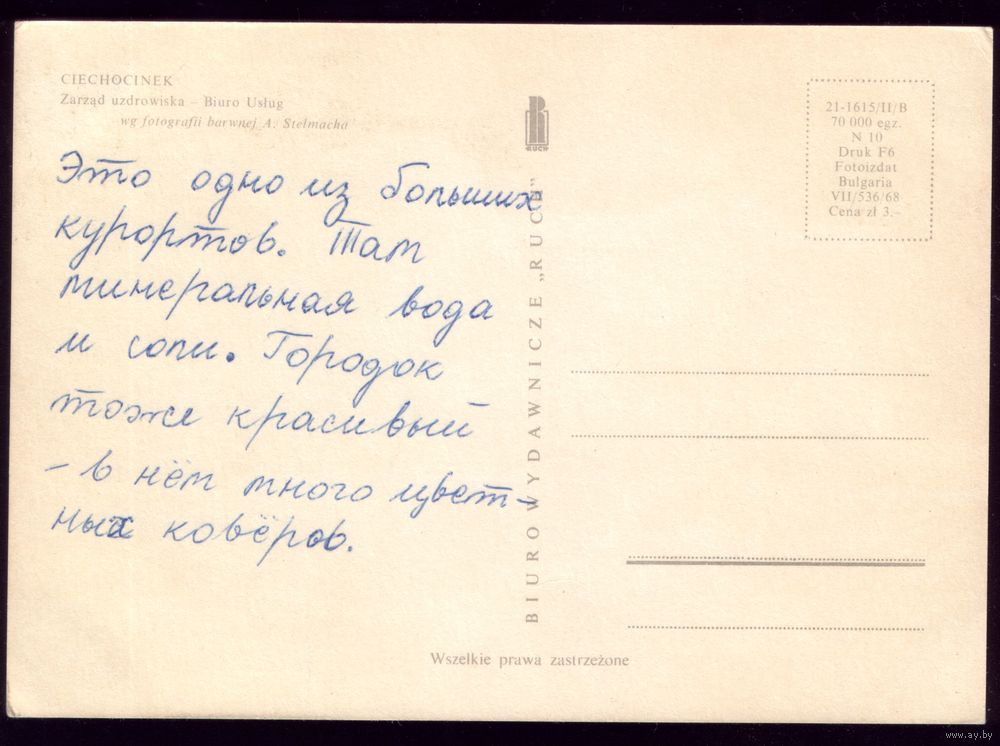 CIECHOCINEK
Zarząd uzdrowiska – Biuro Usług
wg fotografii barwnej A. Stelmacha
Это одно из больших
курортов. Там
минеральная вода
и соли. Городок
тоже красивый
– в нём много цвет-
ных ковёров.
RUCH
BIURO WYDAWNICZE „RUCH”
21-1615/II/B
70 000 egz.
N 10
Druk F6
Fotoizdat
Bulgaria
VII/536/68
Cena zł 3.-
Wszelkie prawa zastrzeżone
www.ay.by